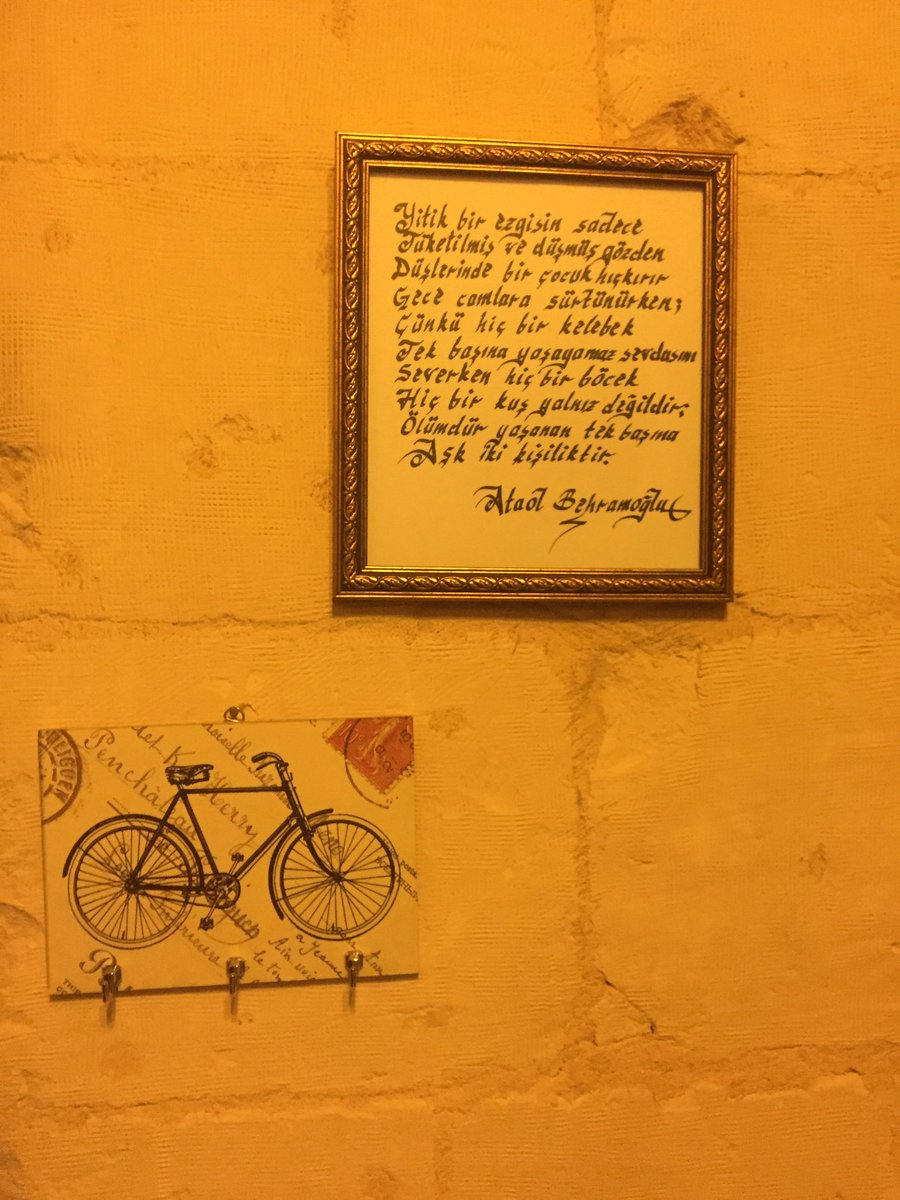 Yitik bir ezgisin sadece
Tüketilmiş ve düşmüş gözden
Düşlerinde bir çocuk hıçkırır
Gece camlara sürtünürken;
Çünkü hiç bir kelebek
Tek başına yaşayamaz sevdasını
Severken hiç bir böcek
Hiç bir kuş yalnız değildir;
Ölümdür yaşanan tek başına
Aşk iki kişiliktir.
Ataol Behramoğlu